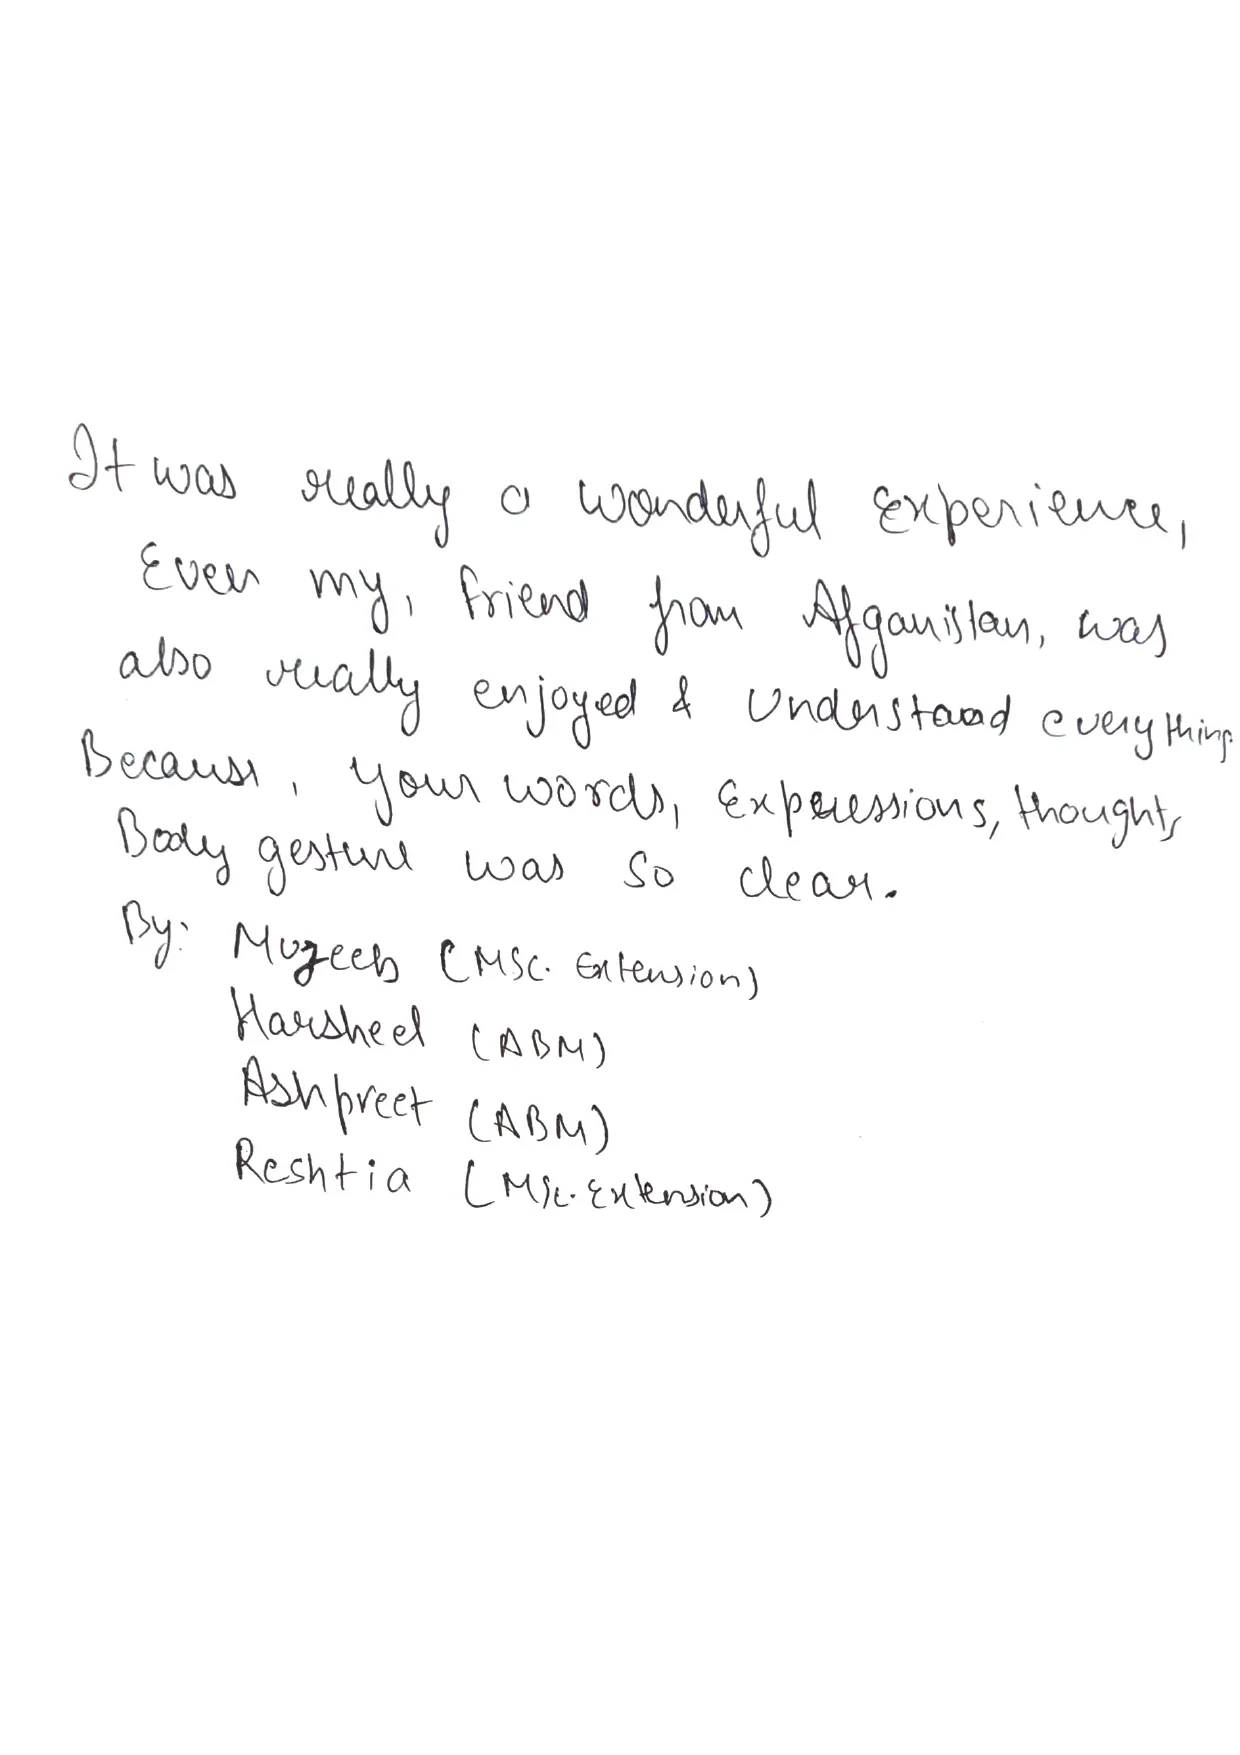 It was really a wonderful Experience,
Even my, friend from Afganistan, was
also really enjoyed & Understaood everything.
Because, your words, Expressions, thoughts,
Body gesture was so clear.
By: Mujeeb (MSc. Extension)
Harsheel (ABM)
Ashpreet (ABM)
Reshtia (MSc. Extension)